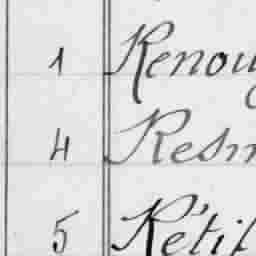 1 Renou
4 Resm
5 Rétif